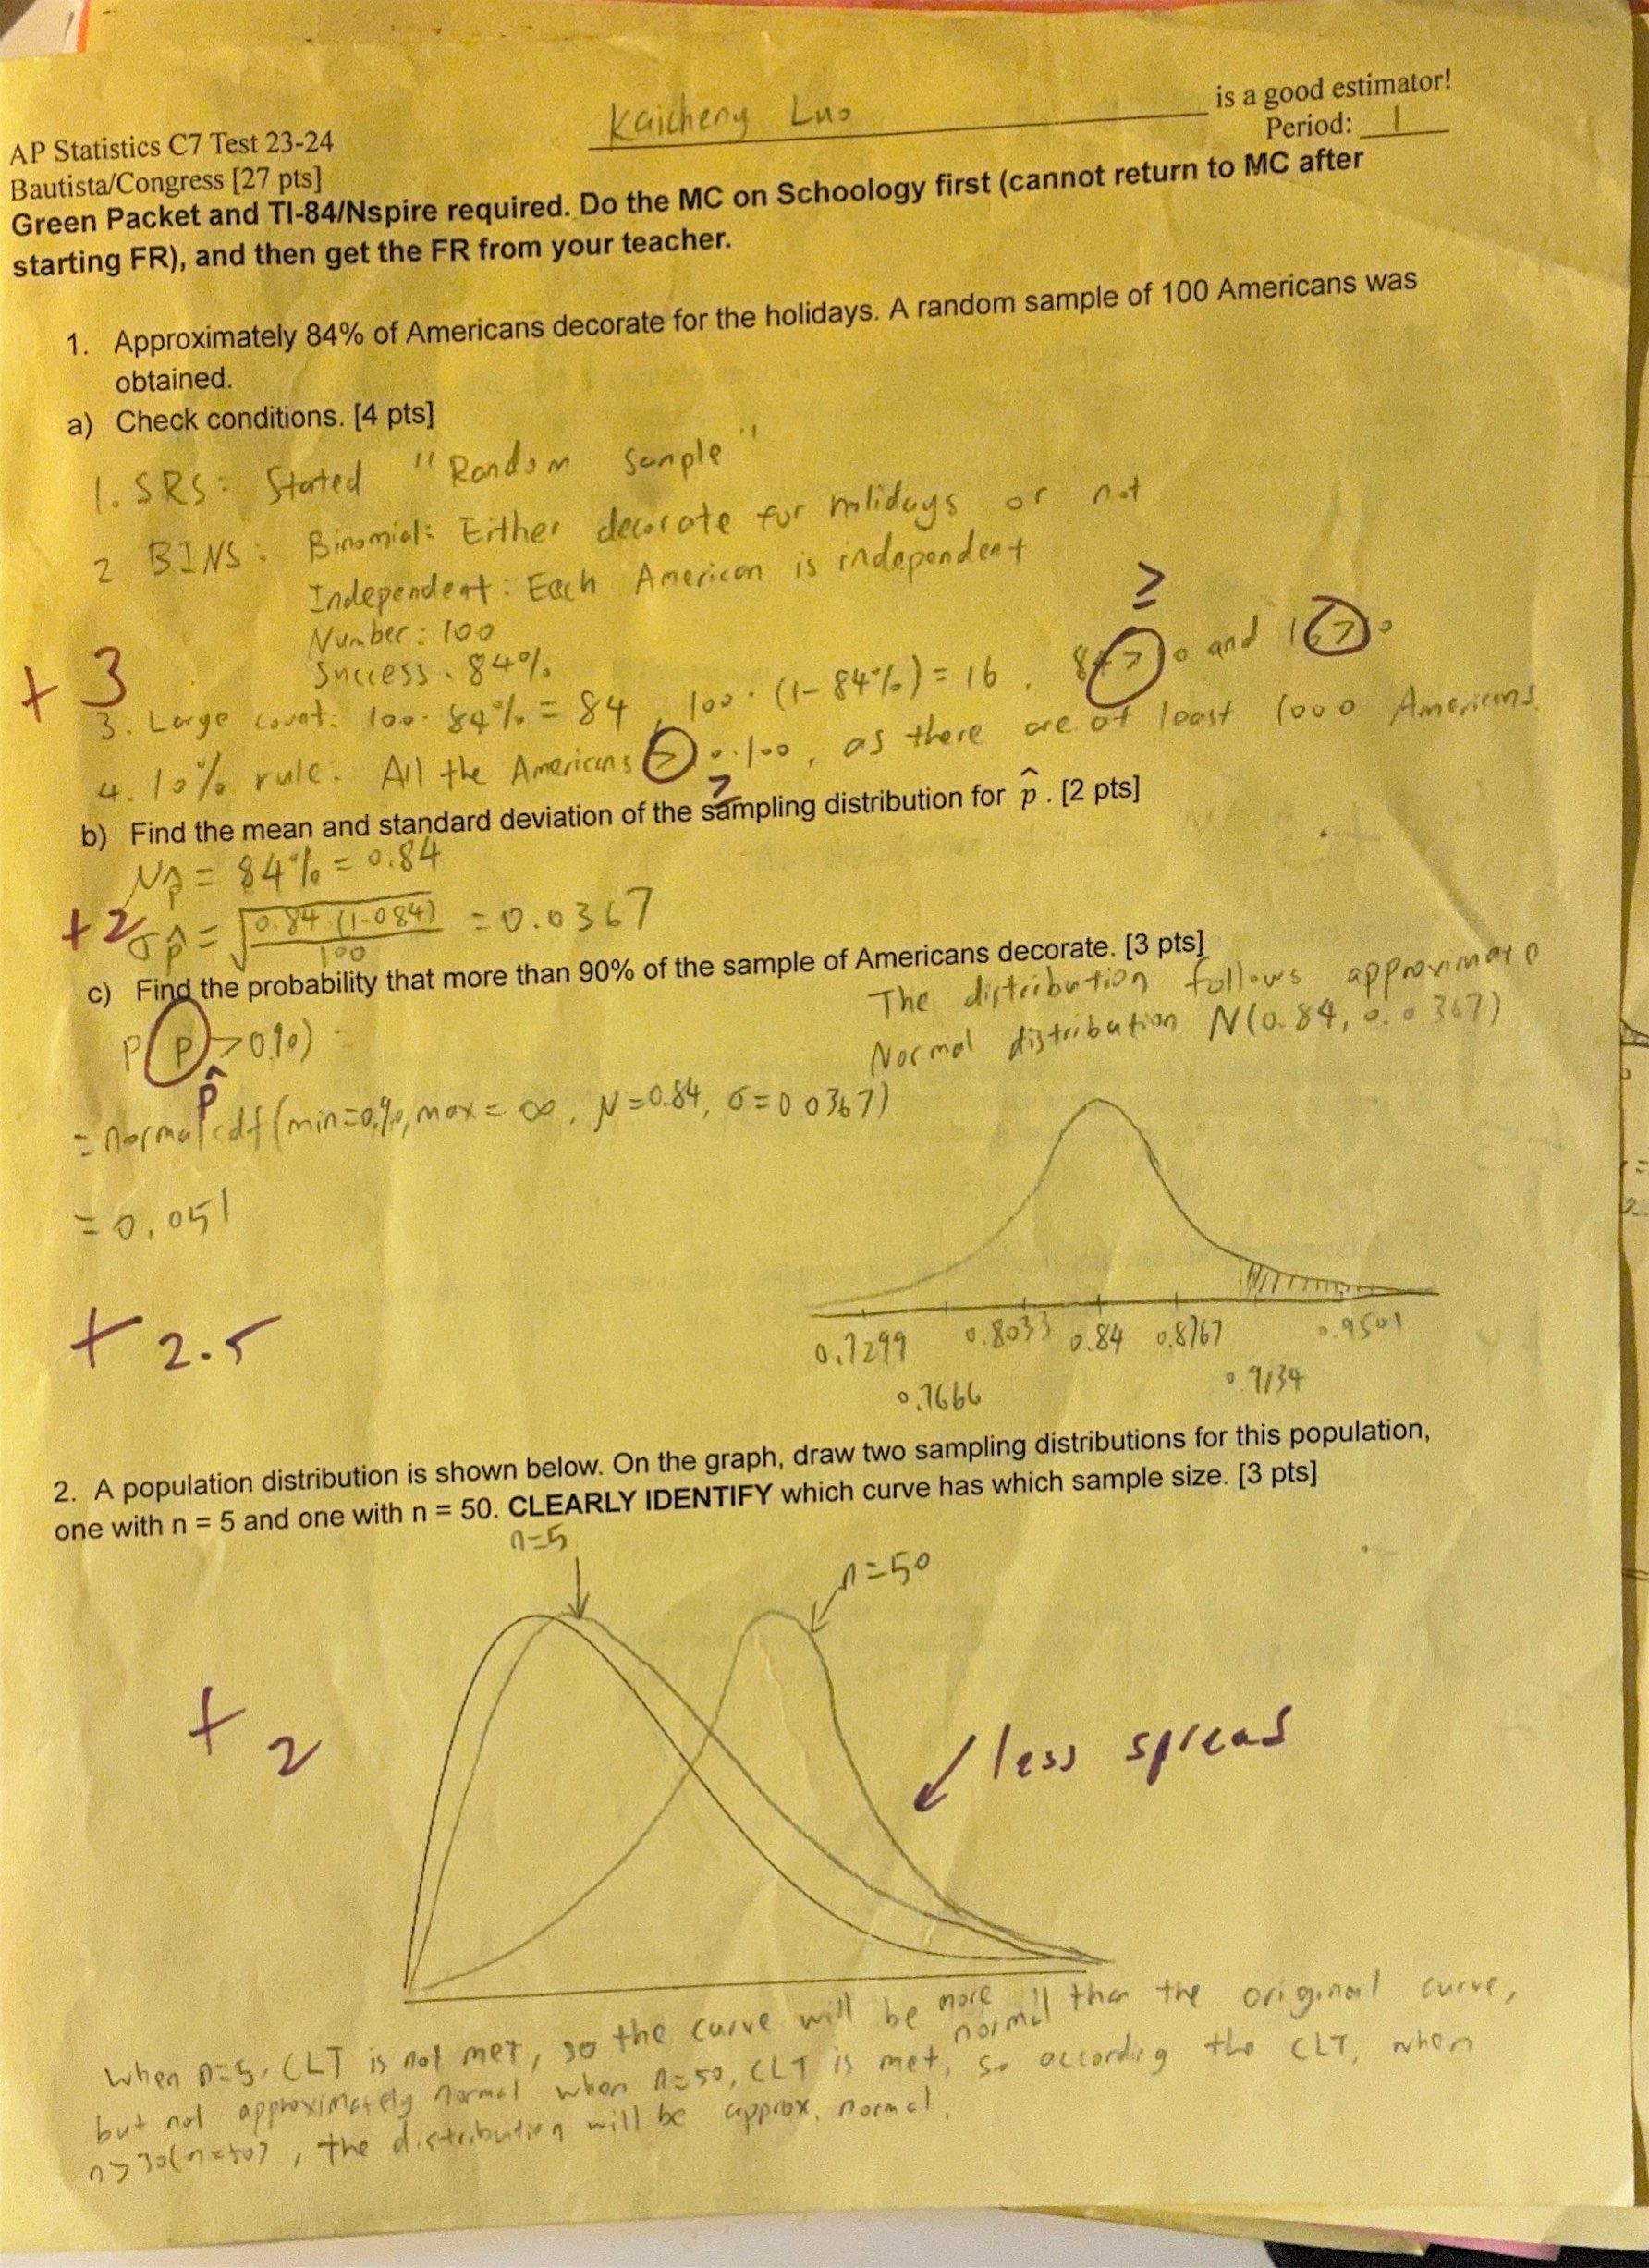 Kaicheng Luo is a good estimator!
AP Statistics C7 Test 23-24
Period: 1
Bautista/Congress [27 pts]
Green Packet and TI-84/Nspire required. Do the MC on Schoology first (cannot return to MC after
starting FR), and then get the FR from your teacher.
1. Approximately 84% of Americans decorate for the holidays. A random sample of 100 Americans was
obtained.
a) Check conditions. [4 pts]
1. SRS: Stated "Random Sample"
2 BINS: Binomial: Either decorate for holidays or not
Independent: Each American is independent
Number: 100
Success: 84%
≥
+3
3. Large count: 100·84% = 84, 100·(1-84%) = 16, 84>10 and 16>10
4. 10% rule: All the Americans > 10·100, as there are at least 1000 Americans.
≥
b) Find the mean and standard deviation of the sampling distribution for p̂. [2 pts]
μp̂ = 84% = 0.84
+2
σp̂ = √(0.84·(1-0.84)/100) = 0.0367
c) Find the probability that more than 90% of the sample of Americans decorate. [3 pts]
The distribution follows approximate
Normal distribution N(0.84, 0.0367)
P(p>0.90) =
p̂
= normalcdf(min=0.90, max=∞, μ=0.84, σ=0.0367)
= 0.051
+2.5
0.7299 0.8033 0.84 0.8767 0.9501
0.7666 0.9134
2. A population distribution is shown below. On the graph, draw two sampling distributions for this population,
one with n = 5 and one with n = 50. CLEARLY IDENTIFY which curve has which sample size. [3 pts]
n=5
n=50
+2
less spread
When n=5, CLT is not met, so the curve will be more normal than the original curve,
but not approximately normal when n=50, CLT is met, so according the CLT, when
n>30(n=50), the distribution will be approx. normal.